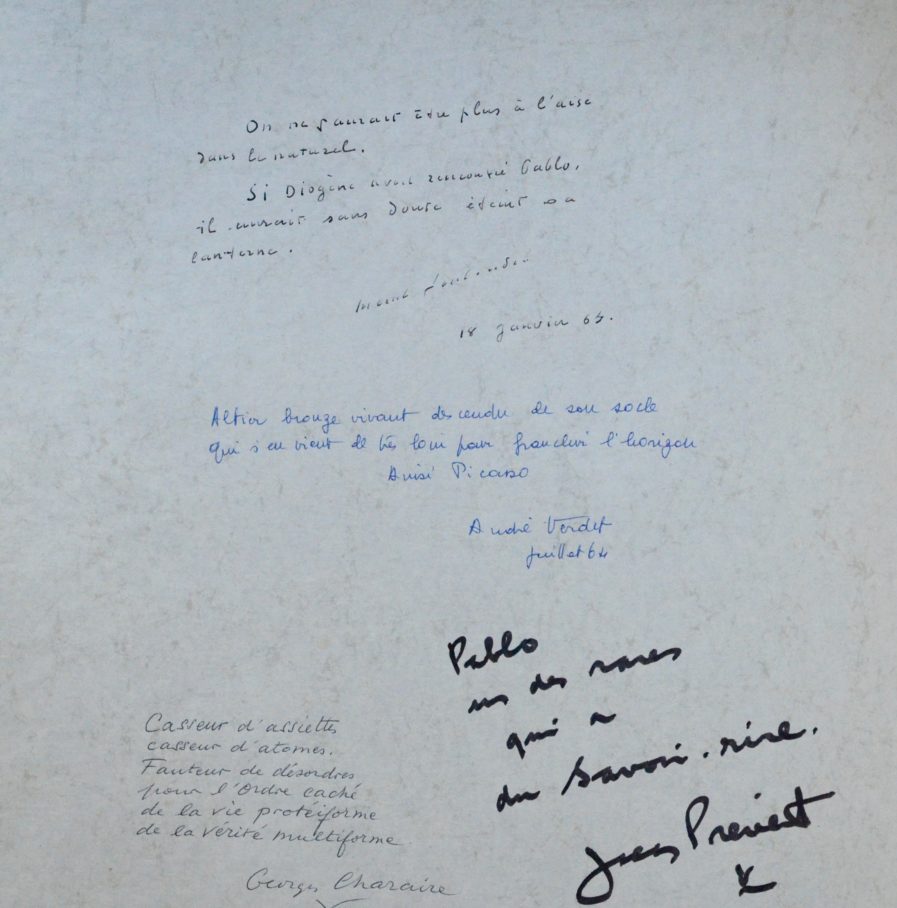 On ne saurait être plus à l'aise
dans le naturel.
Si Diogène avait rencontré Pablo,
il aurait sans doute éteint sa
lanterne.
18 janvier 65.
Altier bronze vivant descendu de son socle
qui s'en vient de très loin pour franchir l'horizon
Ainsi Picasso
André Verdet
juillet 64
Pablo
un des rares
qui a
du Savoir-rire.
Jacques Prévert
Casseur d'assiettes
casseur d'atomes.
Fauteur de désordres
pour l'Ordre caché
de la vie protéiforme
de la vérité multiforme
Georges Charaire